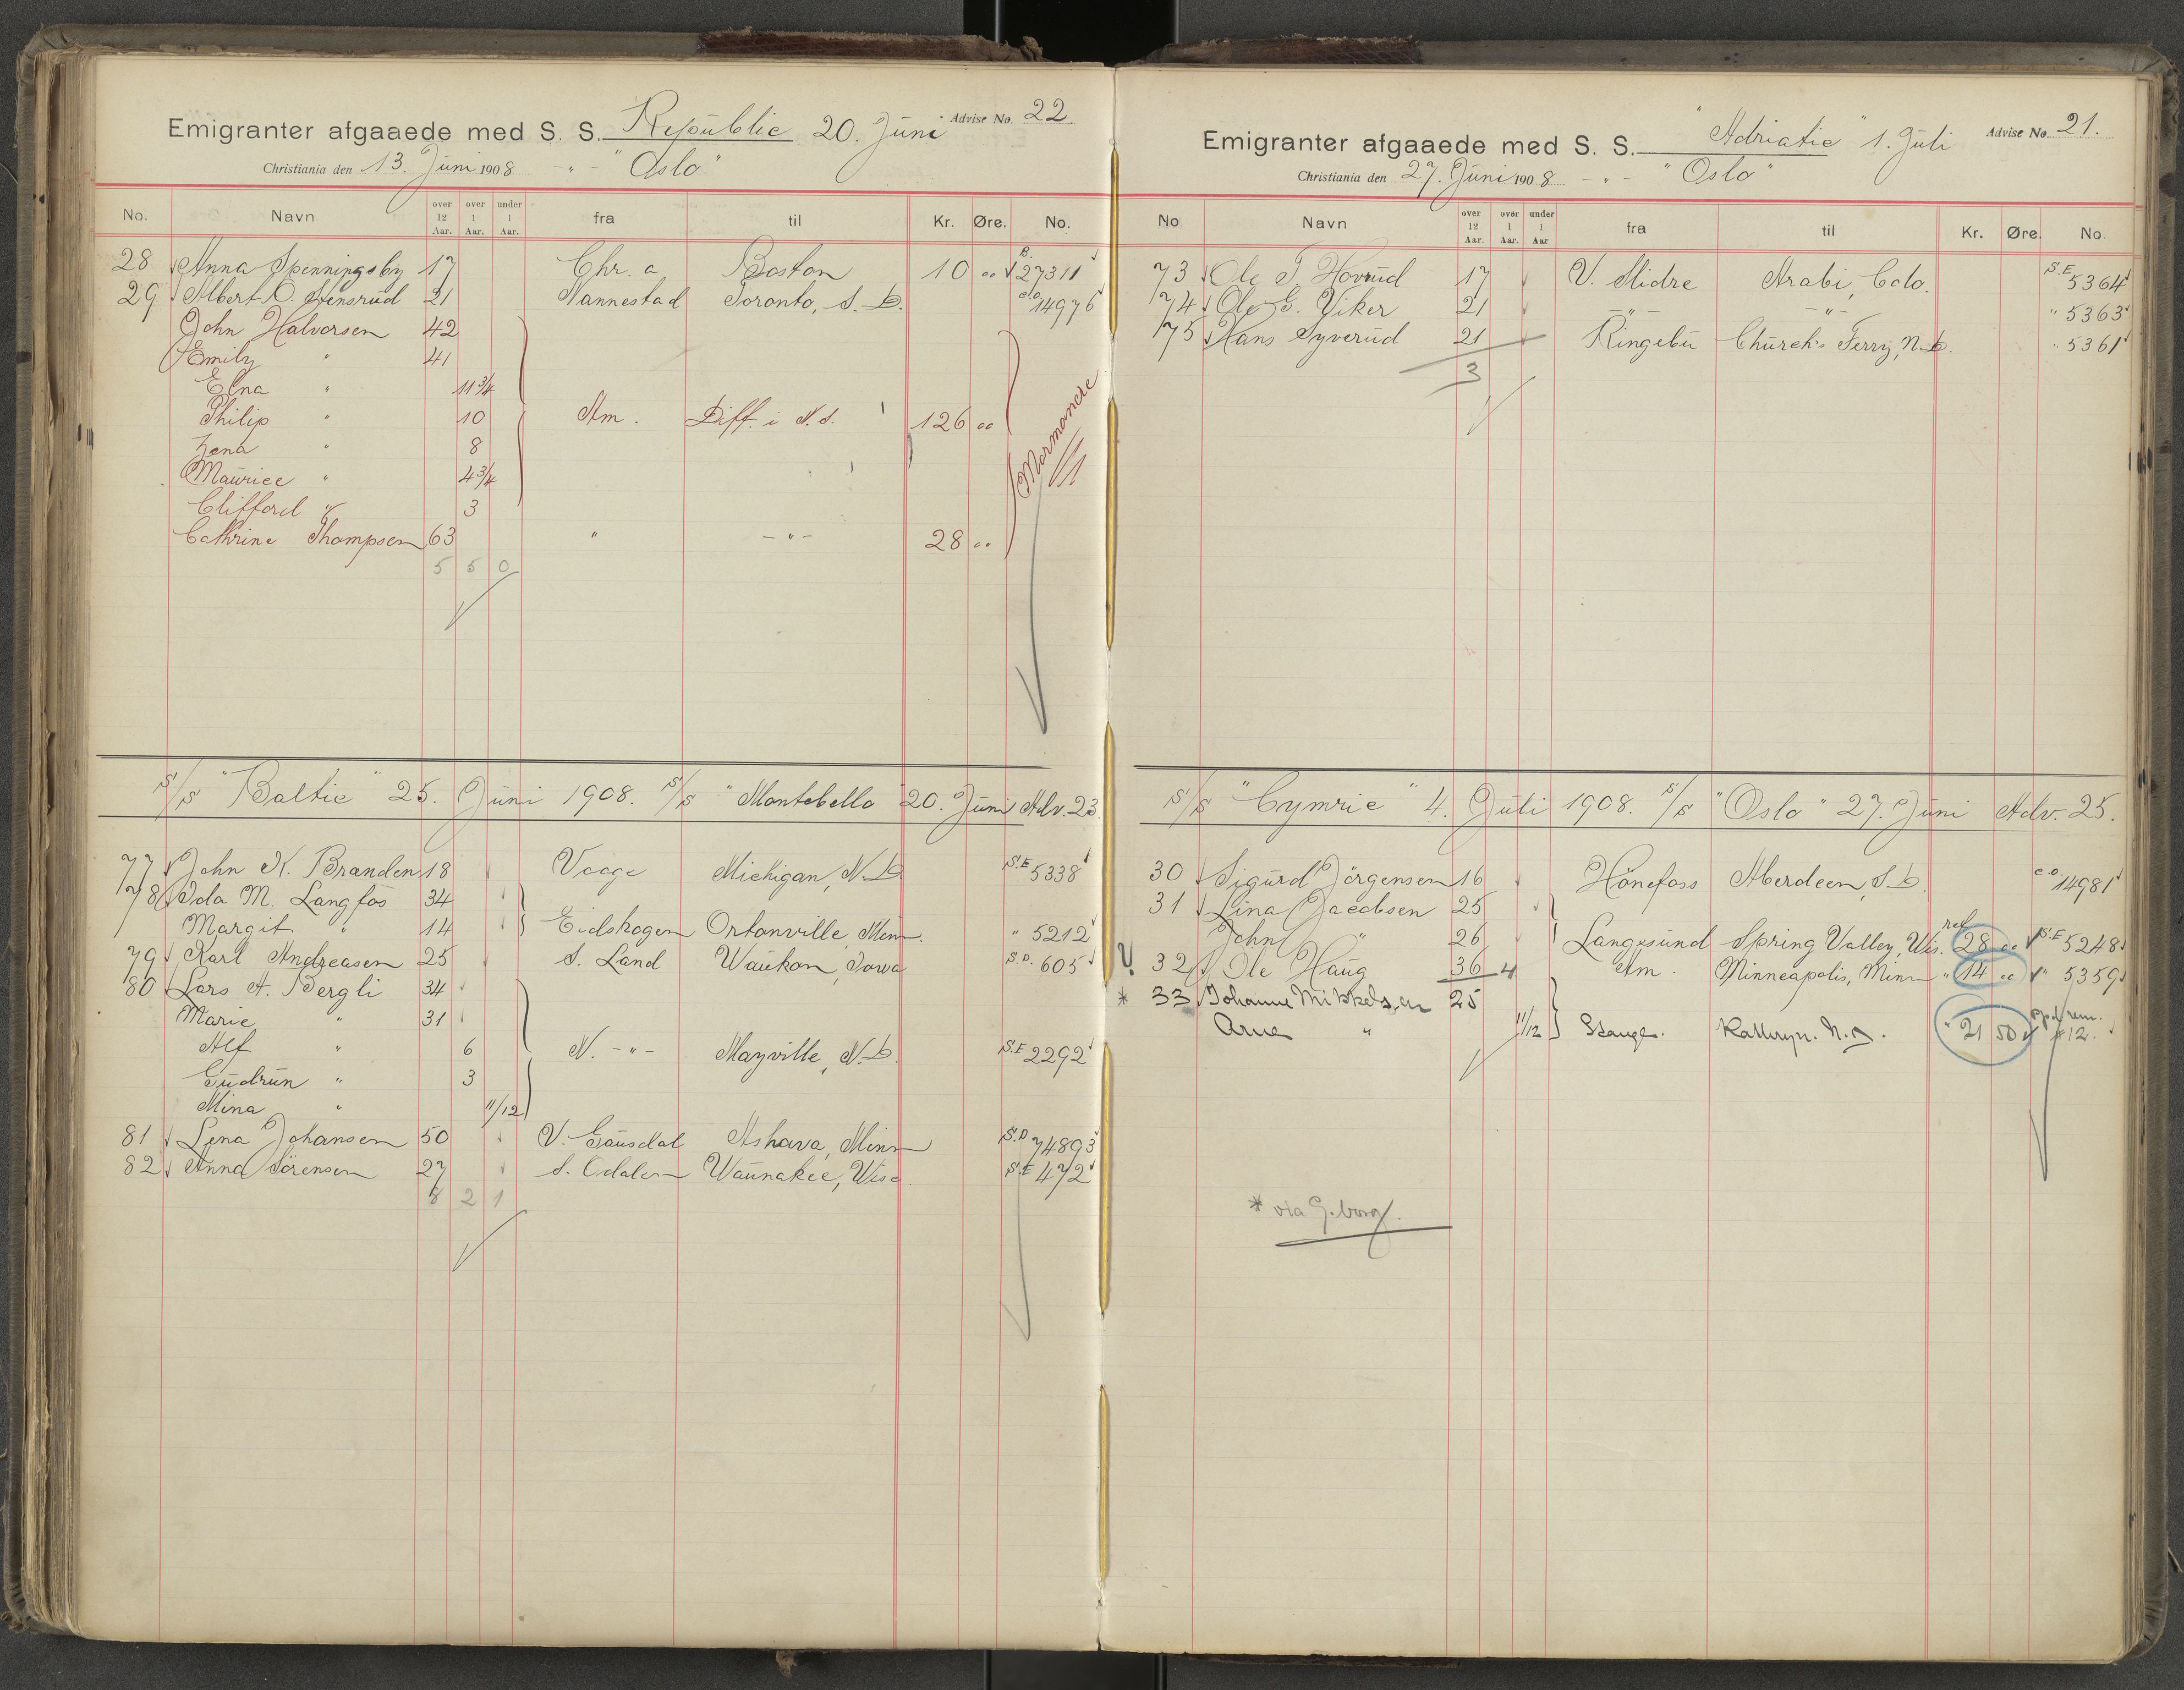 Emigranter afgaaede med S. S. Republic 20. Juni Advise No. 22.
Christiania den 13. Juni 1908 - " - "Oslo"
No. Navn over 12 Aar. over 1 Aar. under 1 Aar. fra til Kr. Øre. No.
28 Anna Spenningsby 17 Chr.a Boston 10 00 B. 27311
29 Albert O. Stensrud 21 Nannestad Toronto, S. D. 14976
John Halvorsen 42
Emily " 41
Elna " 11 3/4
Philip " 10 Am. Diff. i N.S. 126 00
Lena " 8
Maurice " 4 3/4
Clifford " 3
Cathrine Thompsen 63 " - " - 28 00
Mormandre
5 5 0
S/S "Baltic" 25. Juni 1908. S/S "Montebello 20. Juni Adv. 23.
77 John K. Branden 18 Vaage Michigan, N. D. S.E 5338
78 Ida M. Langfos 34
Margit " 14 Eidskogen Ortonville, Minn. " 5212
79 Karl Andreasen 25 S. Land Waukon, Iowa S.D. 605
80 Lars A. Bergli 34
Marie " 31
Alf " 6 N. - " - Mayville, N. D. S.E 2292
Gudrun " 3
Mina " 11/12
81 Lena Johansen 50 V. Gausdal Ashava, Minn S.D 74893
82 Anna Sørensen 27 S. Odalen Waunakee, Wisc. S.E 472
8 2 1
Emigranter afgaaede med S. S. "Adriatic" 1. Juli Advise No. 21.
Christiania den 27. Juni 1908 - " - "Oslo"
No Navn over 12 Aar. over 1 Aar. under 1 Aar fra til Kr. Øre. No.
73 Ole T. Hovrud 17 V. Slidre Arabi, Colo. S.E 5364
74 Ole G. Viker 21 - " - - " - " 5363
75 Hans Syverud 21 Ringebu Church's Ferry, N. D. " 5361
3
S/S "Cymric" 4. Juli 1908. S/S "Oslo" 27. Juni Adv. 25.
30 Sigurd Jørgensen 16 Hönefoss Aberdeen, S. D. 14981
31 Lina Jacobsen 25
John " 26 Langesund Spring Valley, Wis. ref 28 00 S.E 5248
32 Ole Haug 36 4 Am. Minneapolis, Minn " 14 00 " 5359
* 33 Johanne Mikkelsen 25
Arne " 11/12 Stange. Kathryn. N. D. " 21 50 ppd. rem. #12.
* via G.borg.